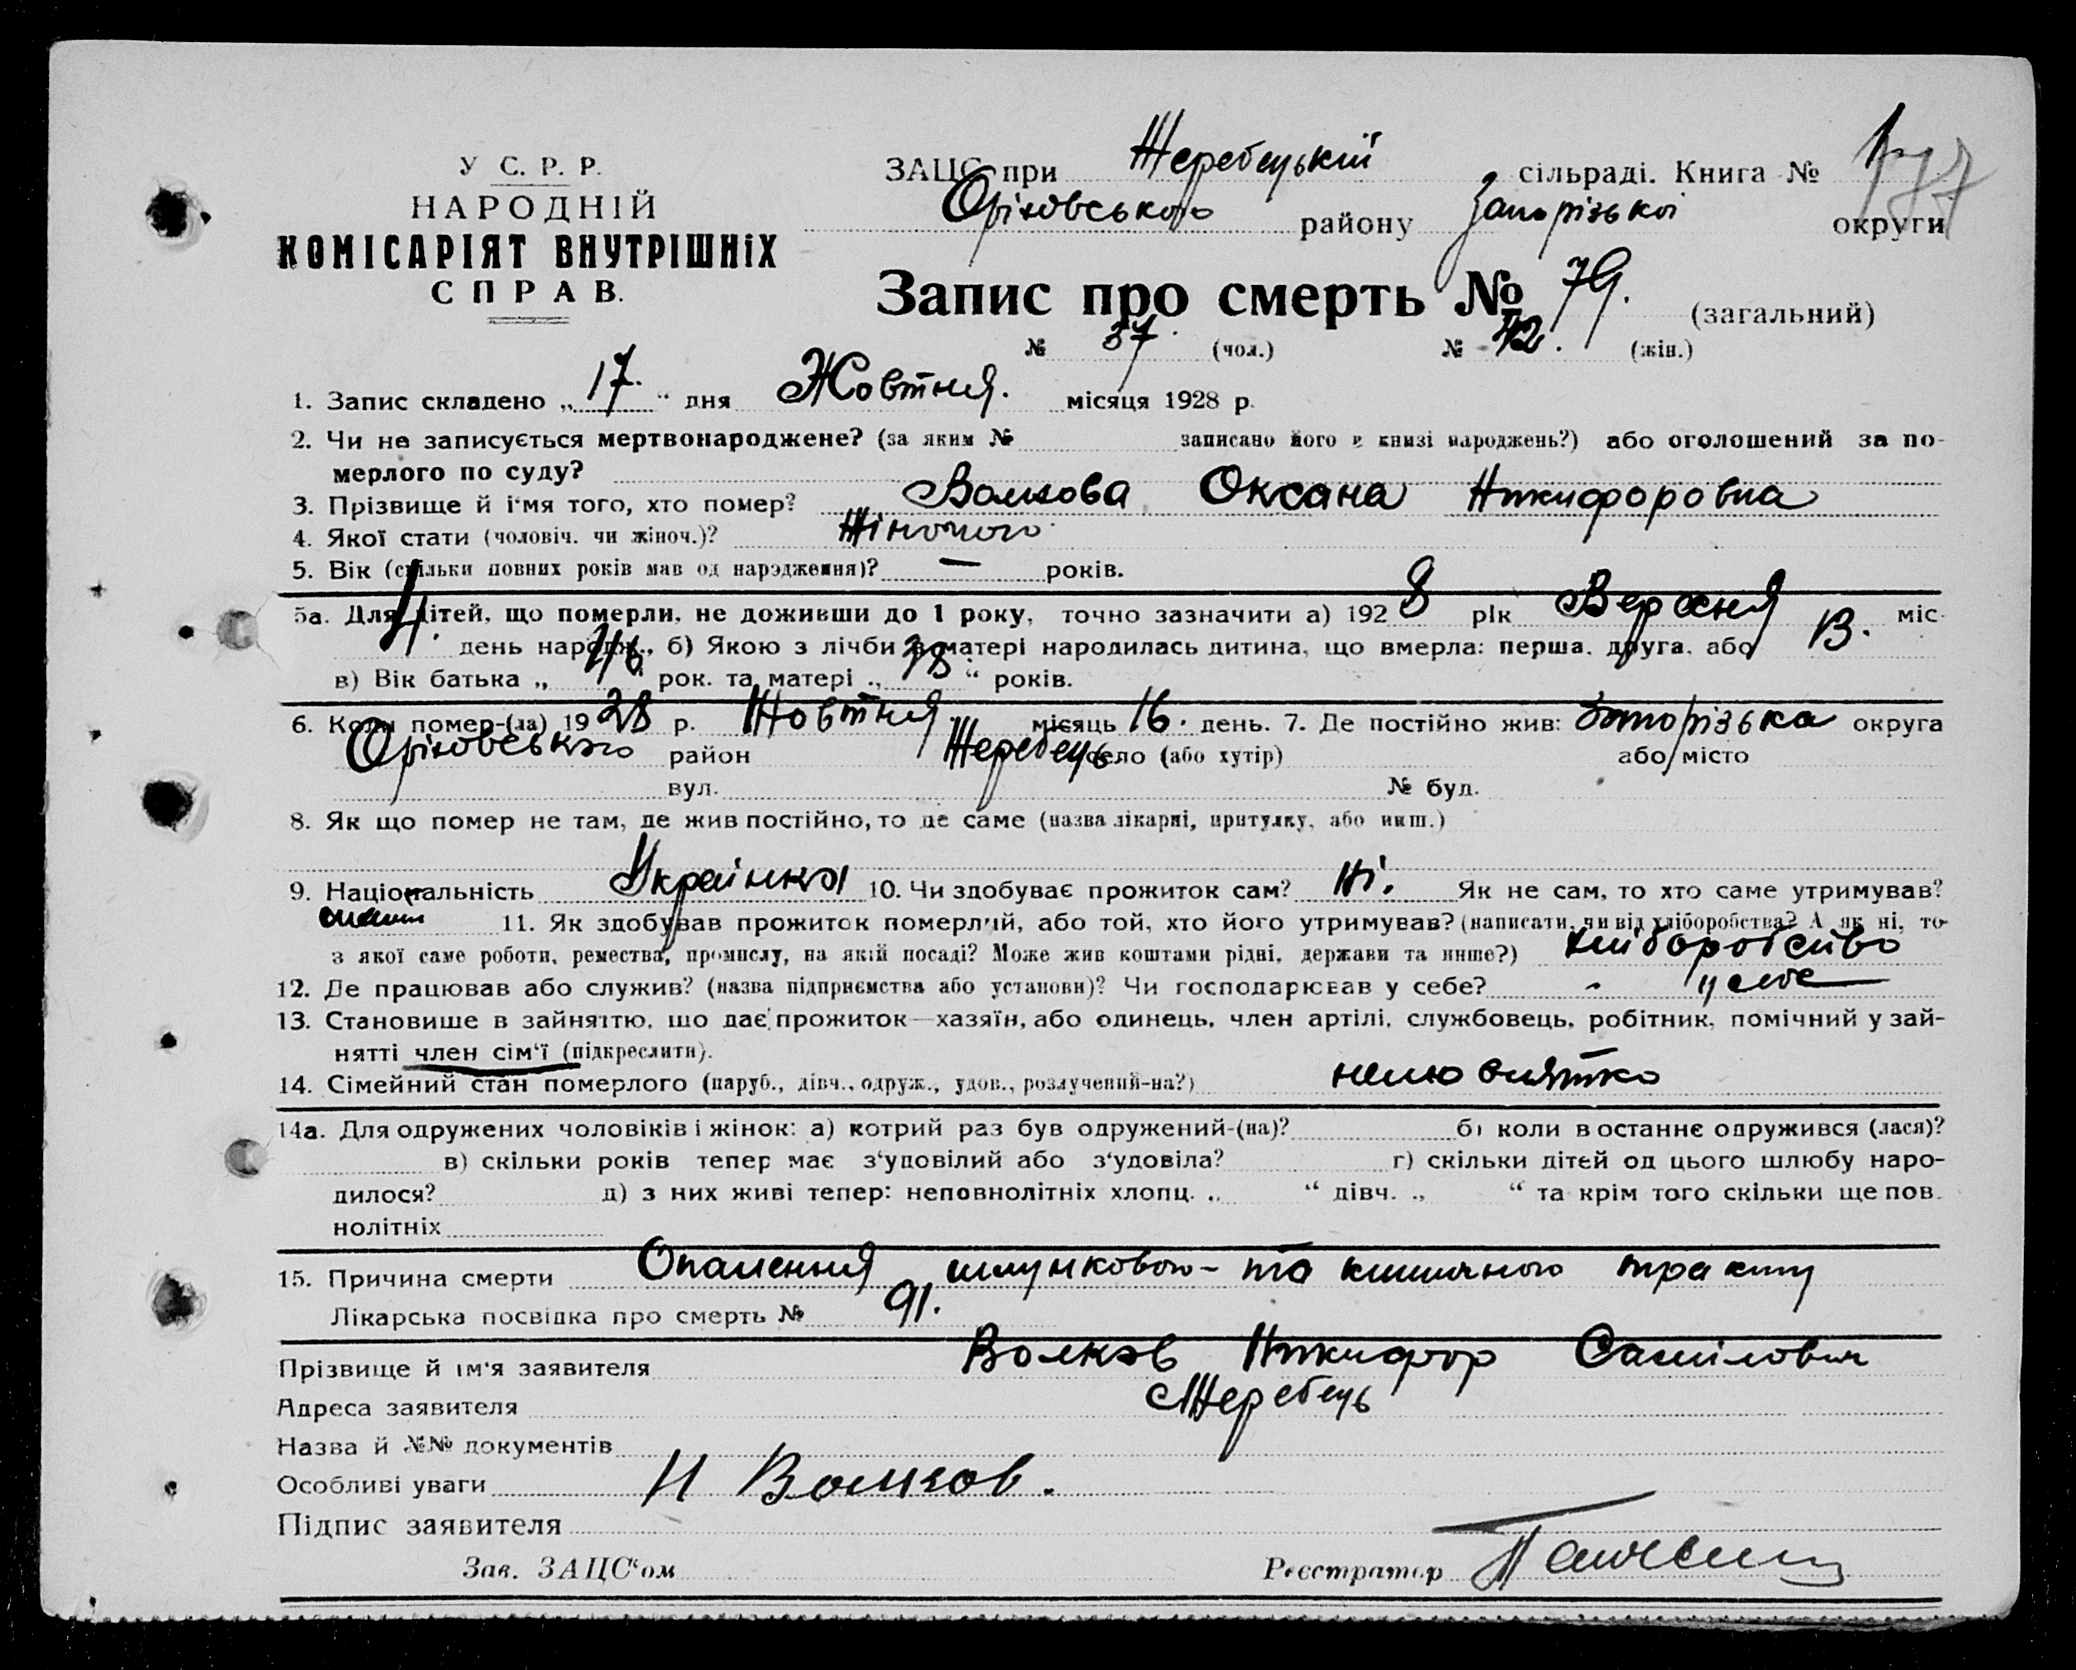 У С. Р. Р.
НАРОДНІЙ
КОМІСАРІЯТ ВНУТРІШНІХ
СПРАВ.
ЗАЦС при Жеребецькій сільраді. Книга №
Оріховського району Запорізької округи
Запис про смерть № 79. (загальний)
№ 37 (чол.) № 42. (жін.)
1. Запис складено „17.“ дня Жовтня. місяця 1928 р.
2. Чи не записується мертвонароджене? (за яким № записано його в книзі народжень?) або оголошений за по-
мерлого по суду?
3. Прізвище й і'мя того, хто помер? Волкова Оксана Никифоровна
4. Якої стати (чоловіч. чи жіноч.)? Жіночого
5. Вік (скільки повних років мав од народження)? — років.
5а. Для дітей, що померли, не доживши до 1 року, точно зазначити а) 1928 рік Вересня міс.
4. день народж., б) Якою з лічби в матері народилась дитина, що вмерла: перша, друга, або 13.
в) Вік батька „46“ рок. та матері „38“ років.
6. Коли помер-(ла) 1928 р. Жовтня місяць 16. день. 7. Де постійно жив: Запорізька округа
Оріховського район Жеребець село (або хутір) або місто
вул. № буд.
8. Як що помер не там, де жив постійно, то де саме (назва лікарні, притулку, або инш.)
9. Національність Українка 10. Чи здобуває прожиток сам? Ні. Як не сам, то хто саме утримував?
11. Як здобував прожиток померлий, або той, хто його утримував? (написати, чи від хліборобства? А як ні, то
з якої саме роботи, ремества, промислу, на якій посаді? Може жив коштами рідні, держави та инше?) хліборобство
12. Де працював або служив? (назва підприємства або установи)? Чи господарював у себе? у себе
13. Становище в зайняттю, що дає прожиток—хазяїн, або одинець, член артілі, службовець, робітник, помічний у зай-
нятті член сім'ї (підкреслити).
14. Сімейний стан померлого (паруб., дівч., одруж., удов., розлучений-на?) немовлятко
14а. Для одружених чоловіків і жінок: а) котрий раз був одружений-(на)? б) коли востаннє одружився (лася)?
в) скільки років тепер має з'удовілий або з'удовіла? г) скільки дітей од цього шлюбу наро-
дилося? д) з них живі тепер: неповнолітніх хлопц. „ “ дівч. „ “ та крім того скільки ще пов.
нолітніх
15. Причина смерти Опалення шлункового - та кишечного тракту
Лікарська посвідка про смерть № 91.
Прізвище й ім'я заявителя Волков Никифор Самілович
Адреса заявителя с Жеребець
Назва й №№ документів
Особливі уваги Н Волков.
Підпис заявителя
Зав. ЗАЦС'ом Реєстратор